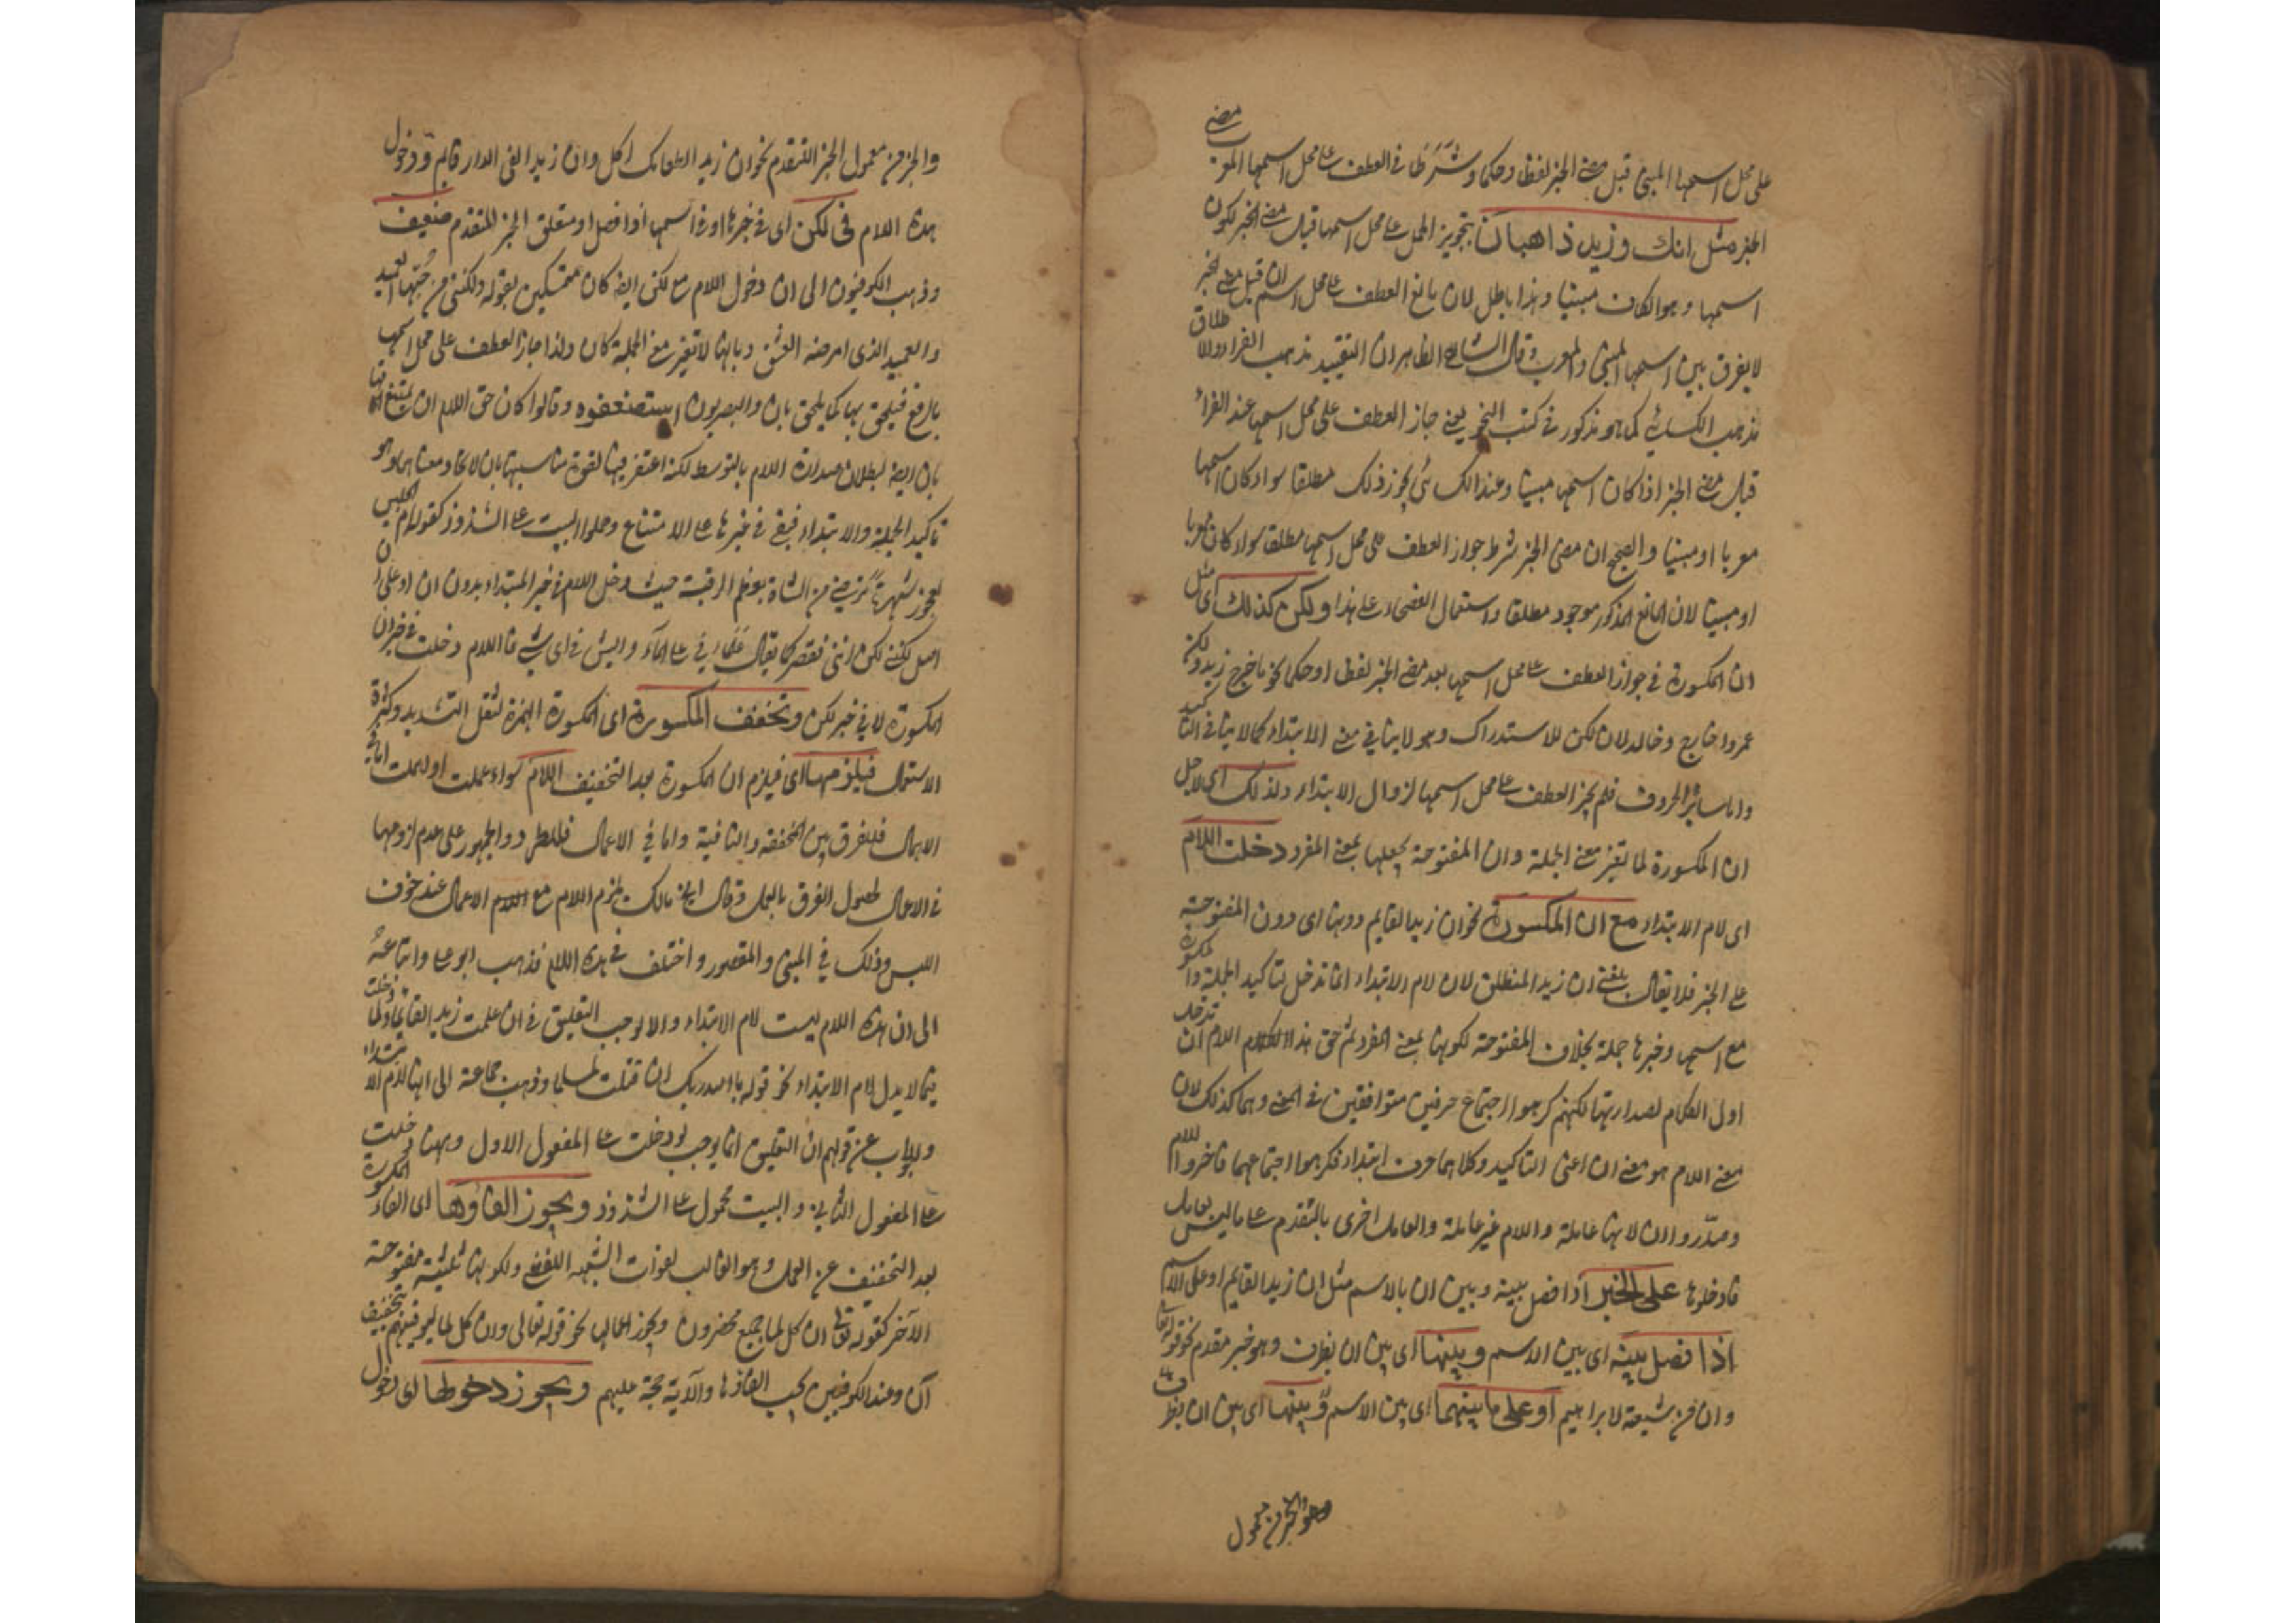 على محل اسمها المبنى قبل مضى الخبر لفظا وحكما وشرطا فى العطف على محل اسمها المعرب مضى
الخبر مثل انك وزيد ذاهبان بتجويز الحمل على محل اسمها قبل مضى الخبر لكون
اسمها وهو الكاف مبنيا وهذا باطل لان مانع العطف على محل اسم ان قبل مضى الخبر
لا يفرق بين اسمها المبنى والمعرب وقال الشارح الظاهر ان التقييد مذهب الفراء والاطلاق
مذهب الكسائى كما هو مذكور فى كتب النحو يعنى جاز العطف على محل اسمها عند الفراء
قبل مضى الخبر اذا كان اسمها مبنيا وعند الكسائى يجوز ذلك مطلقا سواء كان اسمها
معربا او مبنيا والصحيح ان مضى الخبر شرط جواز العطف على محل اسمها مطلقا سواء كان معربا
او مبنيا لان المانع المذكور موجود مطلقا واستعمال الفصحاء على هذا ولكن كذلك اى مثل
ان المكسورة فى جواز العطف على محل اسمها بعد مضى الخبر لفظا او حكما نحو ما خرج زيد ولكن
عمروا خارج وخالد لان لكن للاستدراك وهو لا ينافى معنى الابتداء كما لا ينافى التاكيد
واما سائر الحروف فلم يجز العطف على محل اسمها لزوال الابتداء ولذلك اى لاجل
ان المكسورة لما تغير معنى الجملة وان المفتوحة يجعلها بمعنى المفرد دخلت اللام
اى لام الابتداء مع ان المكسورة نحو ان زيدا لقايم دونها اى دون المفتوحة
على الخبر فلا يقال بلغنى ان زيدا لمنطلق لان لام الابتداء انما تدخل لتاكيد الجملة والمكسورة
مع اسمها وخبرها جملة بخلاف المفتوحة لكونها بمعنى المفرد ثم حق هذا اللام ان تدخل
اول الكلام لصدارتها لكنهم كرهوا اجتماع حرفين متوافقين فى المعنى وهما كذلك لان
معنى اللام هو معنى ان اعنى التاكيد وكلاهما حرف ابتداء فكرهوا اجتماعهما فاخروا اللام
وصدروا ان لانها عاملة واللام غير عاملة والعامل احرى بالتقدم على ما ليس بعامل
فادخلوها على الخبر اذا فصل بينه وبين ان بالاسم مثل ان زيدا لقايم او على الاسم
اذا فصل بينه اى بين الاسم وبينها اى بين ان بظرف وهو خبر مقدم نحو قوله تعالى
وان من شيعته لابراهيم او على ما بينهما اى بين الاسم وبينها اى بين ان بظرف
والخبر من معمول
والخبر من معمول الخبر المتقدم نحو ان زيدا لطعامك اكل وان زيدا لفى الدار قايم ودخول
هذه اللام فى لكن اى فى خبرها او فى اسمها اذا فصل او متعلق الخبر المتقدم ضعيف
وذهب الكوفيون الى ان دخول اللام مع لكن ايضا كان متمسكين بقوله ولكننى من حبها لعميد
والعميد الذى امرضه العشق وبانها لا تغير معنى الجملة كان ولذا جاز العطف على محل اسمها
بالرفع فيلحق بها كما يلحق بان والبصريون استضعفوه وقالوا كان حق اللام ان يمتنع
بان ايضا لبطلان صدارة اللام بالتوسط لكنه اغتفر فيها لقوة مناسبتها بان لاتحاد معناهما وهو
تاكيد الجملة والابتداء فبقى فى غيرها على الامتناع وحملوا البيت على الشذوذ كقوله ام الحليس
لعجوز شهربة ترضى من الشاة بعظم الرقبة حيث دخل اللام فى خبر المبتداء بدون ان او على ان
اصل لكننى لكن اننى فقصر كما يقال علماء فى على الماء وايش فى اى شىء فاللام دخلت فى خبر ان
المكسورة لا فى خبر لكن وتخفف المكسورة اى المكسورة الهمزة لثقل التشديد وكثرة
الاستعمال فيلزمها اى فيلزم ان المكسورة بعد التخفيف اللام سواء عملت او اهملت اما فى
الاهمال فللفرق بين المخففة والنافية واما فى الاعمال فللطرد والجمهور على عدم لزومها
فى الاعمال لحصول الفرق بالعمل وقال ابن مالك يلزم اللام مع الاعمال عند خوف
اللبس وذلك فى المبنى والمقصور واختلف فى هذه اللام فذهب ابو على واتباعه
الى ان هذه اللام ليست لام الابتداء والا لوجب التعليق فى ان علمت زيدا لقايما ولما دخلت
فيما لا يدل لام الابتداء نحو قوله بالله ربك ان قتلت لمسلما وذهب جماعة الى انها لام الابتداء
والجواب عن قولهم ان التعليق انما يوجب لو دخلت على المفعول الاول وههنا دخلت
على المفعول الثانى والبيت محمول على الشذوذ ويجوز الغاؤها اى الغاء المكسورة
بعد التخفيف عن العمل وهو الغالب لفوات الشبه اللفظى ولكونها ثلثية مفتوحة
الآخر كقوله تعالى ان كل لما جميع محضرون ويجوز اعمالها نحو قوله تعالى وان كل لما ليوفينهم بتخفيف
ان وعند الكوفيين يجب الغاؤها والآية حجة عليهم ويجوز دخولها اى دخول